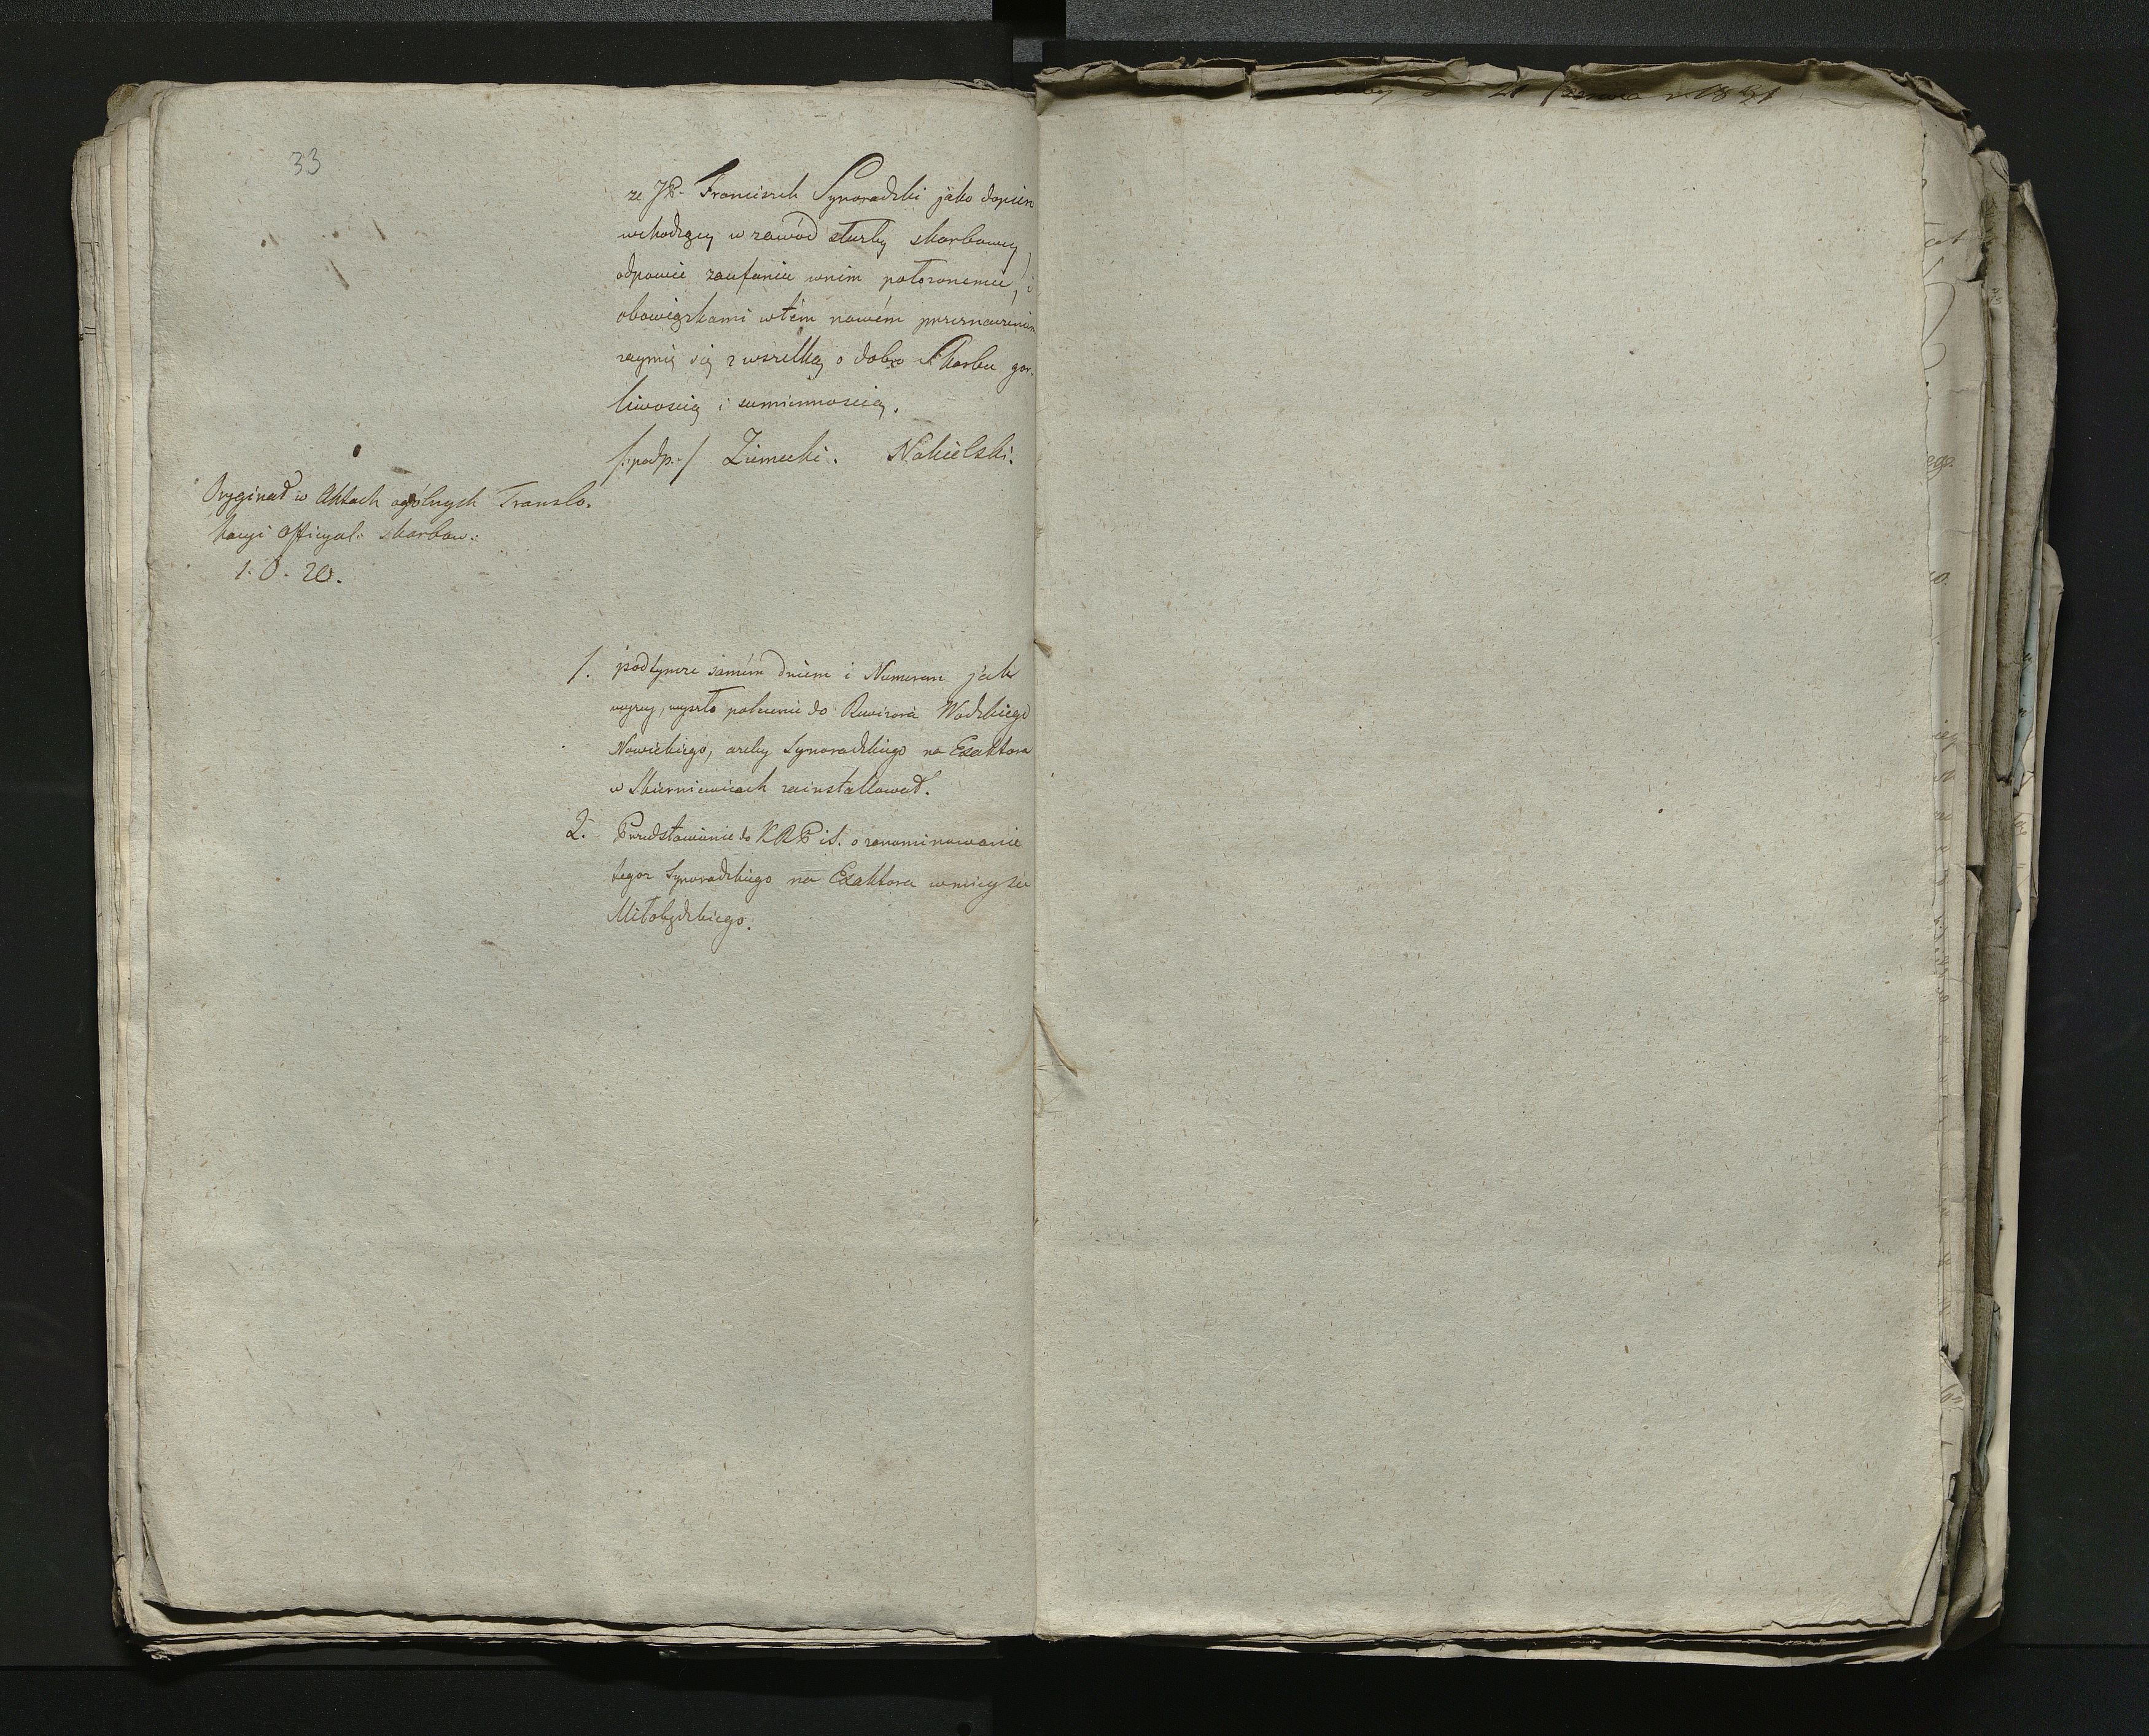 33
ze JP. Franciszek Synoradzki jako dopiero
wchodzący w zawód służby skarbowey,
odpowie zaufaniu w nim położonemu, i
obowiązkami w tém nowém przeznaczeniu
zaymie się z wszelką o dobro Skarbu gor-
liwością i sumiennością.
/:podp:/ Ziemecki. Nakielski.
Oryginał w Aktach ogólnych Translo-
kacyi Officyal: skarbow:
1. O. 20.
1. pod tymże samém dniem i Numerem jak
wyżey, wyszło polecenie do Rewizora Wodzkiego
Nowickiego, ażeby Synoradzkiego na Exaktora
w Skierniewicach zainstallował.
2. Przedstawienie do KRP i S. o zanominowanie
tegoż Synoradzkiego na Exaktora w mieysce
Miłobędzkiego.
21 Czerwca 1821